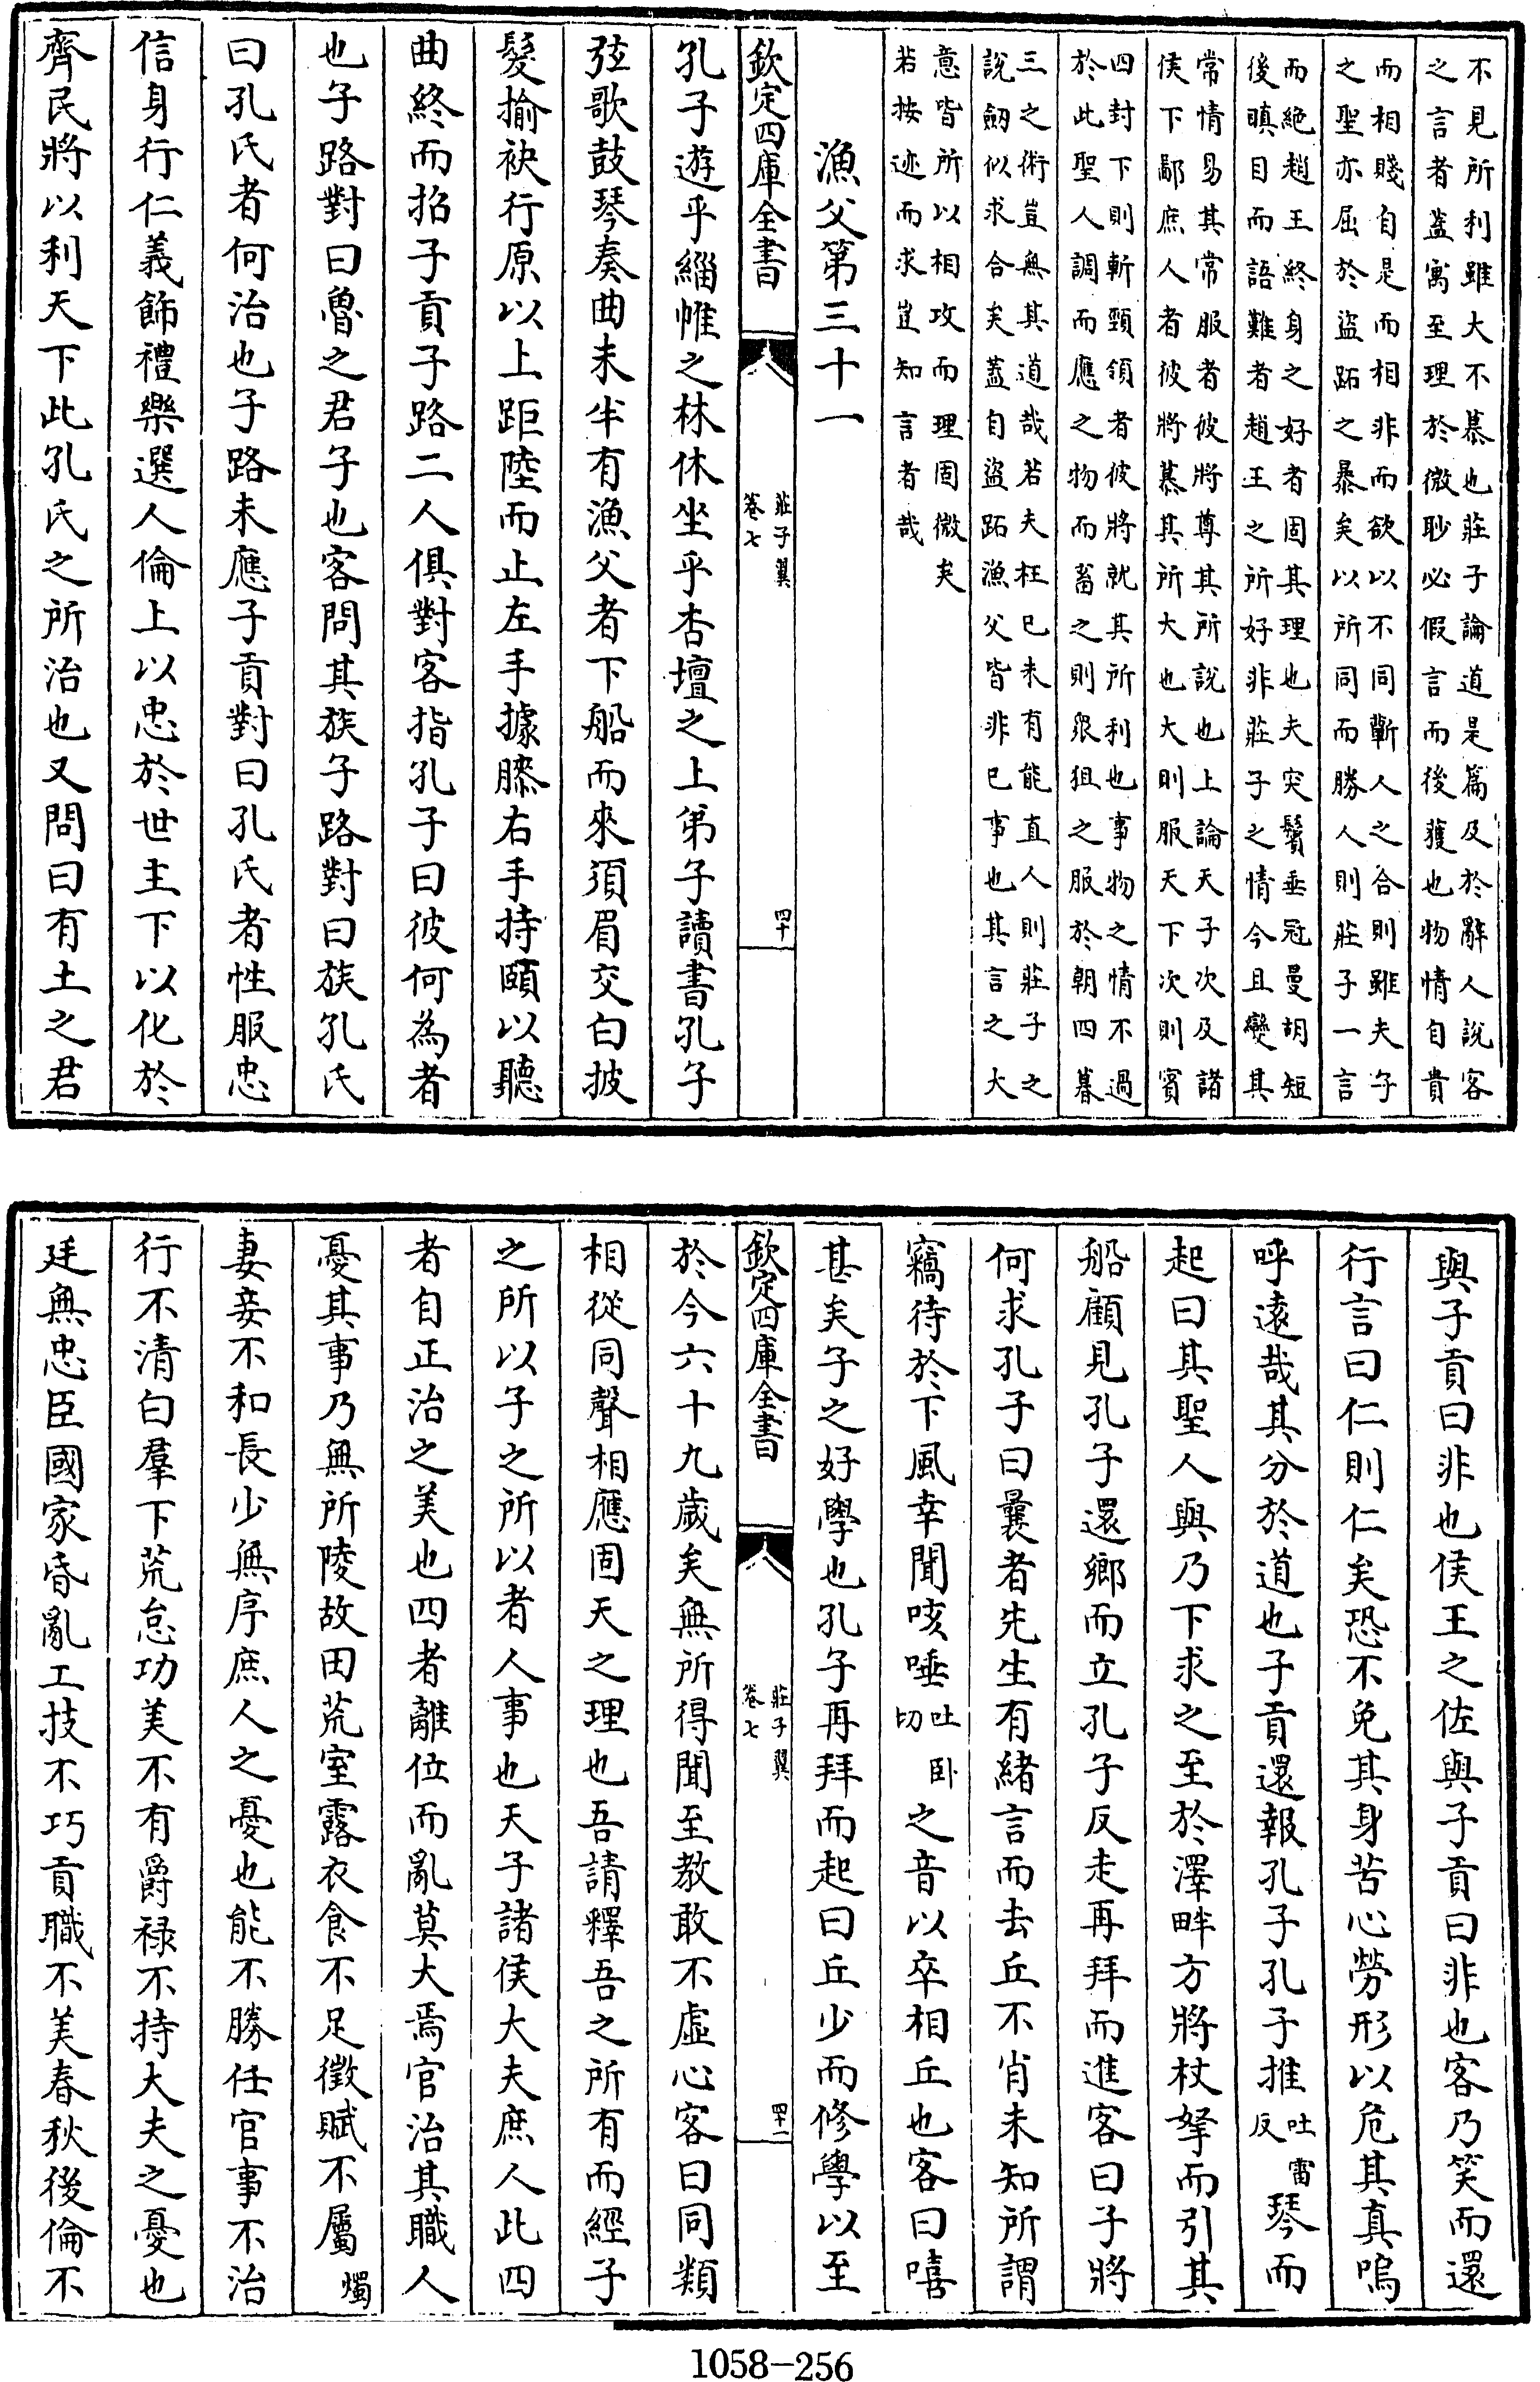 不見所利雖大不慕也莊子論道是篇及於辭人說客
之言者蓋寓至理於微眇必假言而後獲也物情自貴
而相賤自是而相非而欲以不同蘄人之合則雖夫子
之聖亦屈於盜跖之暴矣以所同而勝人則莊子一言
而絶趙王終身之好者固其理也夫突鬢垂冠曼胡短
後瞋目而語難者趙王之所好非莊子之情今且變其
常情易其常服者彼將尊其所說也上論天子次及諸
侯下鄙庶人者彼將慕其所大也大則服天下次則賓
四封下則斬頸領者彼將就其所利也事物之情不過
於此聖人調而應之物而畜之則衆狙之服於朝四暮
三之術豈無其道哉若夫枉已未有能直人則莊子之
說劒似求合矣蓋自盜跖漁父皆非已事也其言之大
意皆所以相攻而理固微矣
若按迹而求豈知言者哉
漁父第三十一
欽定四庫全書 莊子翼 卷七 四十
孔子遊乎緇帷之林休坐乎杏壇之上弟子讀書孔子
弦歌鼓琴奏曲未半有漁父者下船而來須眉交白披
髮揄袂行原以上距陸而止左手據膝右手持頤以聽
曲終而招子貢子路二人俱對客指孔子曰彼何為者
也子路對曰魯之君子也客問其族子路對曰族孔氏
曰孔氏者何治也子路未應子貢對曰孔氏者性服忠
信身行仁義飾禮樂選人倫上以忠於世主下以化於
齊民將以利天下此孔氏之所治也又問曰有土之君
與子貢曰非也侯王之佐與子貢曰非也客乃笑而還
行言曰仁則仁矣恐不免其身苦心勞形以危其真嗚
呼遠哉其分於道也子貢還報孔子孔子推吐雷反琴而
起曰其聖人與乃下求之至於澤畔方將杖拏而引其
船顧見孔子還鄉而立孔子反走再拜而進客曰子將
何求孔子曰曩者先生有緒言而去丘不肖未知所謂
竊待於下風幸聞咳唾吐卧切之音以卒相丘也客曰嘻
甚矣子之好學也孔子再拜而起曰丘少而修學以至
欽定四庫全書 莊子翼 卷七 四十一
於今六十九歲矣無所得聞至教敢不虛心客曰同類
相從同聲相應固天之理也吾請釋吾之所有而經子
之所以子之所以者人事也天子諸侯大夫庶人此四
者自正治之美也四者離位而亂莫大焉官治其職人
憂其事乃無所陵故田荒室露衣食不足徵賦不屬燭
妻妾不和長少無序庶人之憂也能不勝任官事不治
行不清白羣下荒怠功美不有爵祿不持大夫之憂也
廷無忠臣國家昏亂工技不巧貢職不美春秋後倫不
1058-256